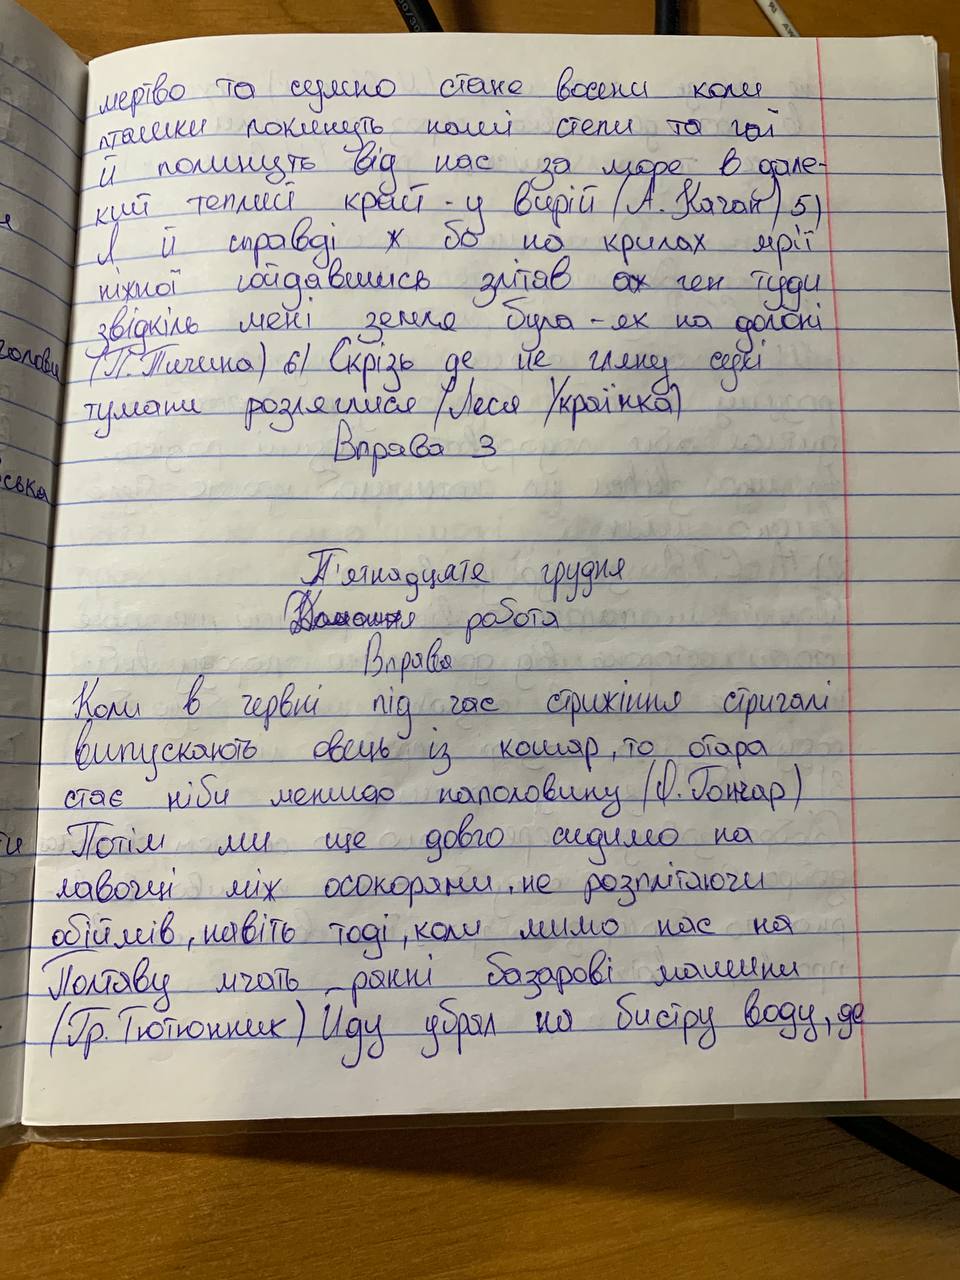 мертво та сумно стане восени коли
пташки покинуть наші степи та гаї
й полинуть від нас за море в дале-
кий теплий край - у вирій (А. Качан) 5)
А й справді ж бо на крилах мрії
ніжної гойдавшись злітав аж ген туди
звідкіль мені земля була - як на долоні
(П. Тичина) 6) Скрізь де не гляну сухі
тумани розляглися (Леся Українка)
Вправа 3
П'ятнадцяте грудня
Домашня робота
Вправа
Коли в червні під час стрижіння стригалі
випускають овець із кошар, то отара
стає ніби меншою наполовину (О. Гончар)
Потім ми ще довго сидимо на
лавочці між осокорами, не розплітаючи
обіймів, навіть тоді, коли мимо нас на
Полтаву мчать ранні базарові машини
(Гр. Тютюнник) Йду убрід на бистру воду, де
голови
ська
ти